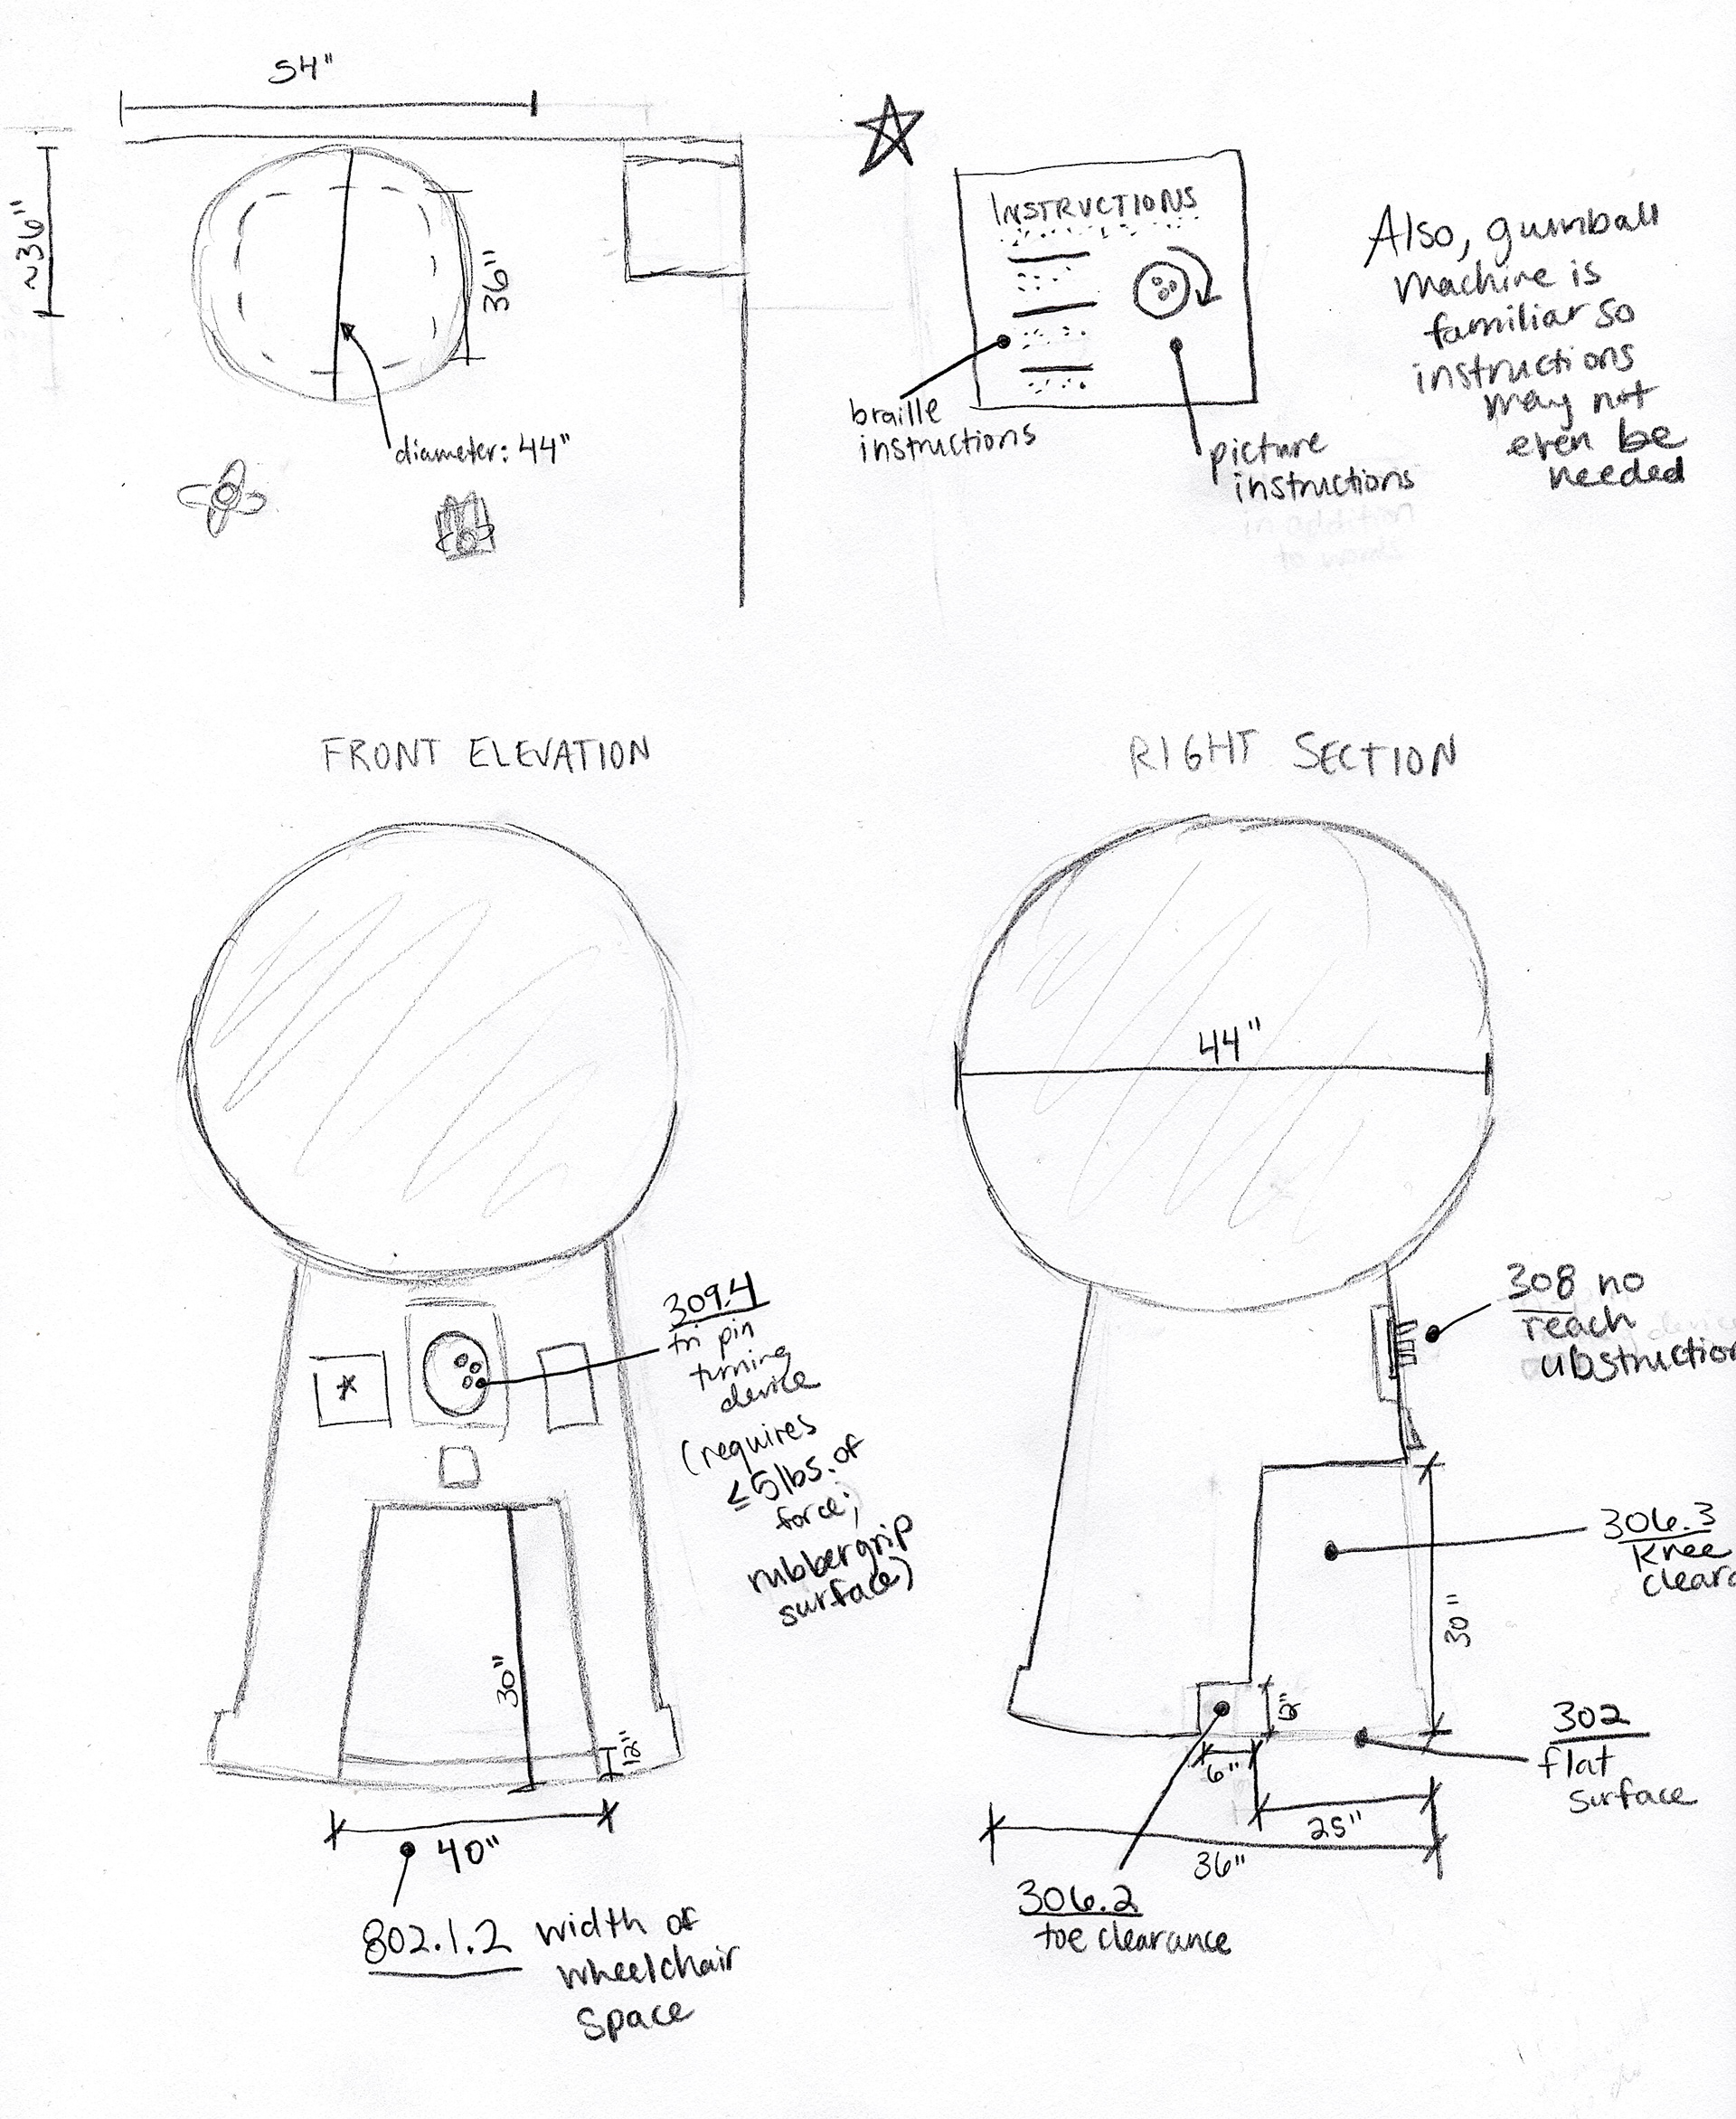 54"
~36"
36"
diameter: 44"
INSTRUCTIONS
braille
instructions
picture
instructions
Also, gumball
machine is
familiar so
instructions
may not
even be
needed
FRONT ELEVATION
309.4
tri pin
turning
device
(requires
≤5lbs. of
force;
rubber grip
surface)
30"
12"
40"
802.1.2 width of
wheelchair
space
RIGHT SECTION
44"
308 no
reach
ubstruction
306.3
knee
cleara
30"
12"
6"
25"
36"
302
flat
surface
306.2
toe clearance